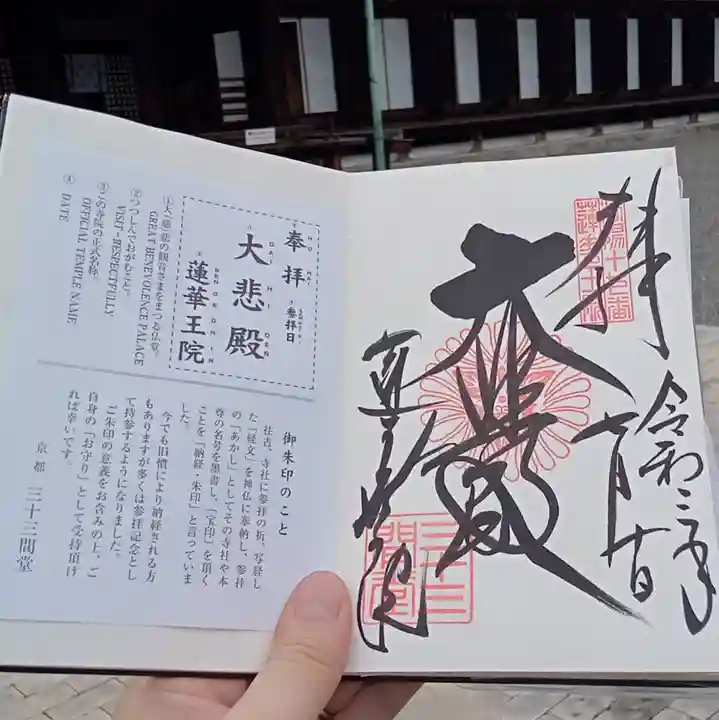 奉拝
大悲殿
蓮華王院
①大慈悲の観音さまをまつる仏堂。
GREAT BENEVOLENCE PALACE
②つつしんでおがむこと。
VISIT-RESPECTFULLY
③この寺院の正式名称。
OFFICIAL TEMPLE NAME
④
DATE
御朱印のこと
往古、寺社に参拝の折、写経し
た「経文」を神仏に奉納し、参拝
の「あかし」としてその寺社や本
尊の名号を墨書し、「宝印」を頂く
ことを「納経・朱印」と言っていま
した。
今でも旧慣により納経される方
もありますが多くは参拝記念とし
て持参するようになりました。
ご朱印の意義をお含みの上、ご
自身の「お守り」として受持頂け
れば幸いです。
京都 三十三間堂
拝
令和三年
七月
大悲殿
三十三
間堂